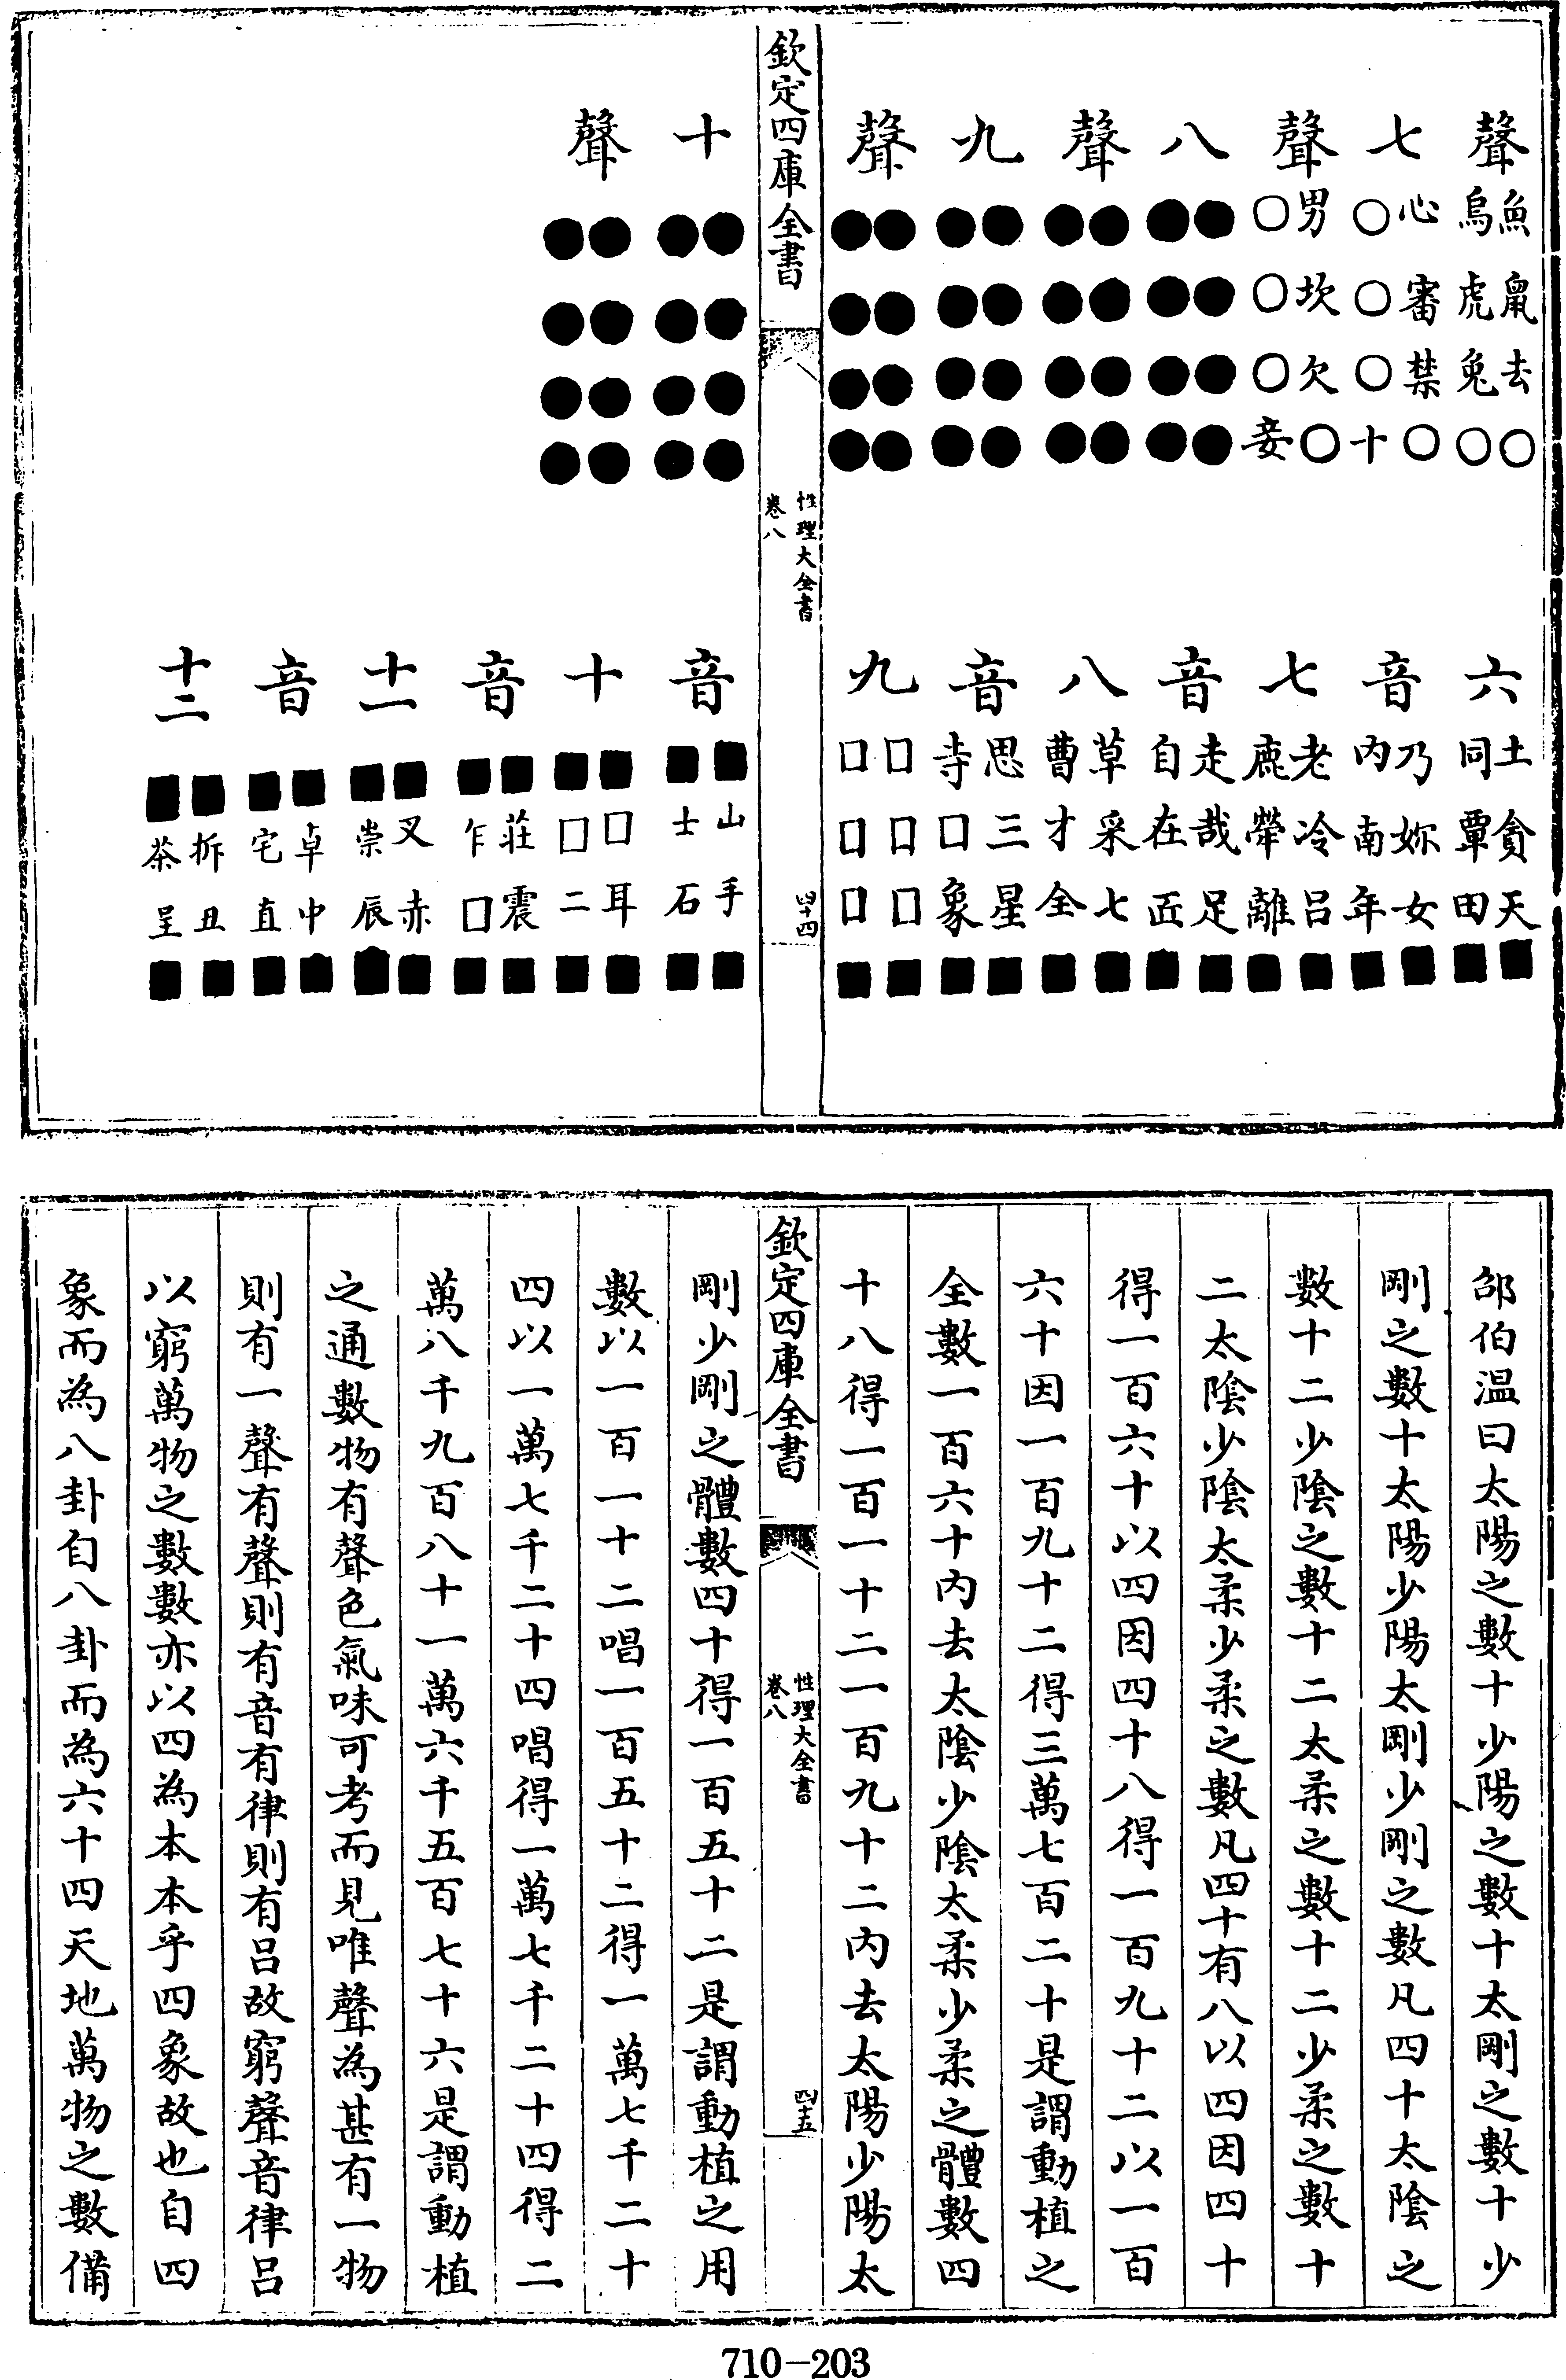 聲
魚鼠去○
烏虎兔○
七
心審禁○
○○○十
聲
男坎欠○
○○○妾
八
●●●●
●●●●
聲
●●●●
●●●●
九
●●●●
●●●●
聲
●●●●
●●●●
六
土貪天■
同覃田■
音
乃妳女■
內南年■
七
老冷呂■
鹿犖離■
音
走哉足■
自在匠■
八
草采七■
曹才全■
音
思三星■
寺□象■
九
□□□■
□□□■
欽定四庫全書
性理大全書
卷八
四十四
十
●●●●
●●●●
聲
●●●●
●●●●
音
■山手■
■士石■
十
■□耳■
■□二■
音
■莊震■
■乍□■
十一
■叉赤■
■崇辰■
音
■卓中■
■宅直■
十二
■拆丑■
■茶呈■
邵伯温曰太陽之數十少陽之數十太剛之數十少
剛之數十太陽少陽太剛少剛之數凡四十太陰之
數十二少陰之數十二太柔之數十二少柔之數十
二太陰少陰太柔少柔之數凡四十有八以四因四十
得一百六十以四因四十八得一百九十二以一百
六十因一百九十二得三萬七百二十是謂動植之
全數一百六十內去太陰少陰太柔少柔之體數四
十八得一百一十二一百九十二內去太陽少陽太
欽定四庫全書
性理大全書
卷八
四十五
剛少剛之體數四十得一百五十二是謂動植之用
數以一百一十二唱一百五十二得一萬七千二十
四以一萬七千二十四唱得一萬七千二十四得二
萬八千九百八十一萬六千五百七十六是謂動植
之通數物有聲色氣味可考而見唯聲為甚有一物
則有一聲有聲則有音有律則有呂故窮聲音律呂
以窮萬物之數數亦以四為本本乎四象故也自四
象而為八卦自八卦而為六十四天地萬物之數備
710-203